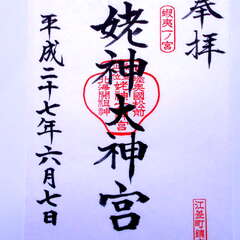 奉拝
蝦夷一ノ宮
姥神大神宮
平成二十七年六月七日
北海開祖神
江差町鎮